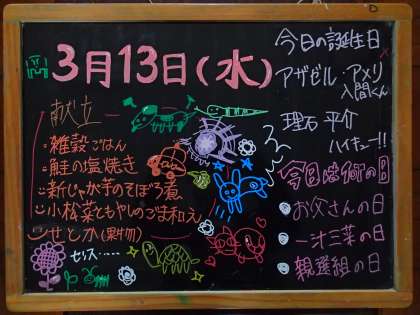 3月13日(水)
献立
雑穀ごはん
鮭の塩焼き
新じゃが芋のそぼろ煮
小松菜ともやしのごま和え
せとか(果物)
今日の誕生日
アザゼル・アメリ
入間くん
理石 平介
ハイキュー!!
今日は何の日
お父さんの日
一汁三菜の日
親選組の日